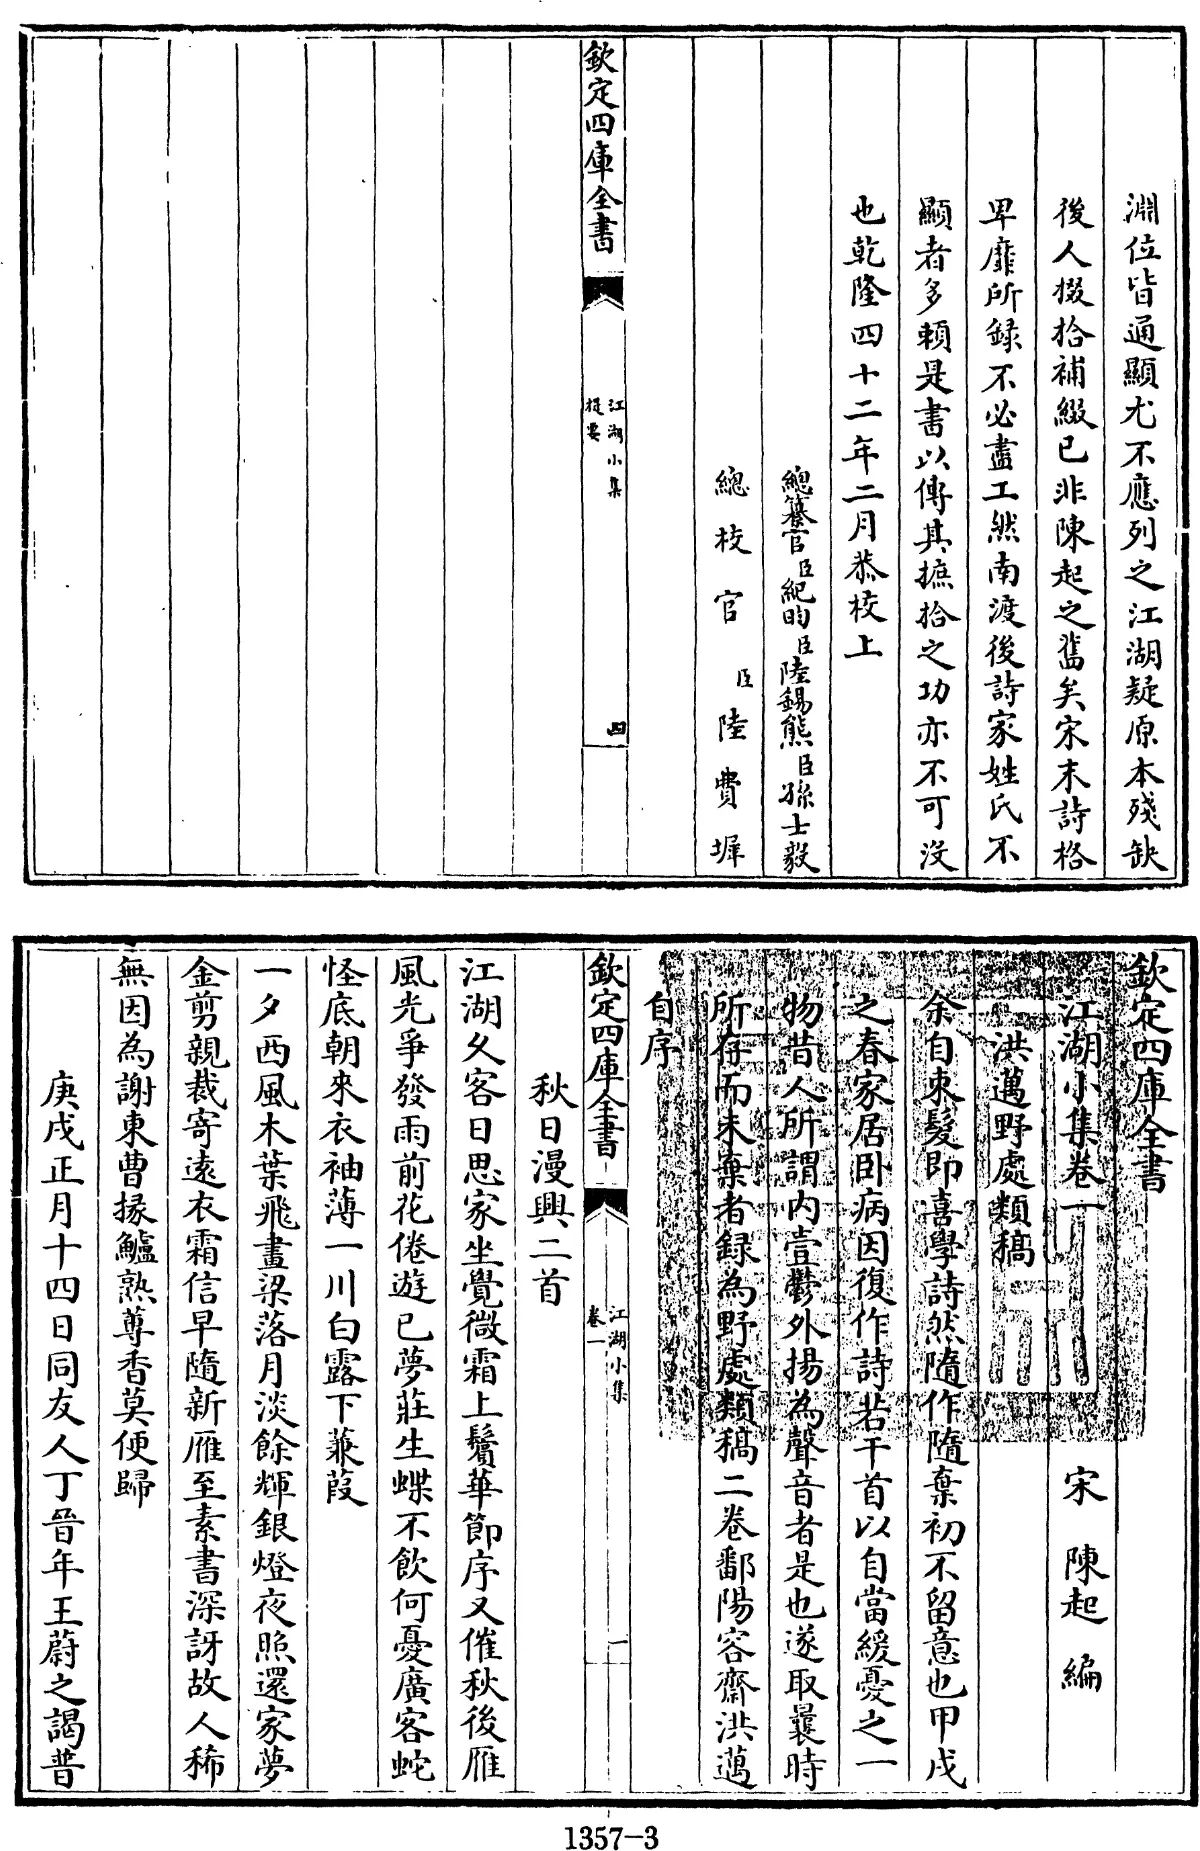 淵位皆通顯尤不應列之江湖疑原本殘缺
後人掇拾補綴已非陳起之舊矣宋末詩格
卑靡所録不必盡工然南渡後詩家姓氏不
顯者多頼是書以傳其摭拾之功亦不可没
也乾隆四十二年二月恭校上
總纂官臣紀昀臣陸錫熊臣孫士毅
總校官臣陸費墀
欽定四庫全書
江湖小集
提要
四
欽定四庫全書
江湖小集卷一
宋 陳起 編
洪邁野處類稿
余自束髮即喜學詩然隨作隨棄初不留意也甲戌
之春家居卧病因復作詩若干首以自當緩憂之一
物昔人所謂内壹鬱外揚為聲音者是也遂取曩時
所存而未棄者録為野處類稿二卷鄱陽容齋洪邁
自序
欽定四庫全書
江湖小集
卷一
一
秋日漫興二首
江湖久客日思家坐覺微霜上鬢華節序又催秋後雁
風光爭發雨前花倦遊已夢莊生蝶不飲何憂廣客蛇
怪底朝來衣袖薄一川白露下蒹葭
一夕西風木葉飛畫梁落月淡餘輝銀燈夜照還家夢
金剪親裁寄遠衣霜信早隨新雁至素書深訝故人稀
無因為謝東曹掾鱸熟蓴香莫便歸
庚戌正月十四日同友人丁晉年王蔚之謁普
1357-3